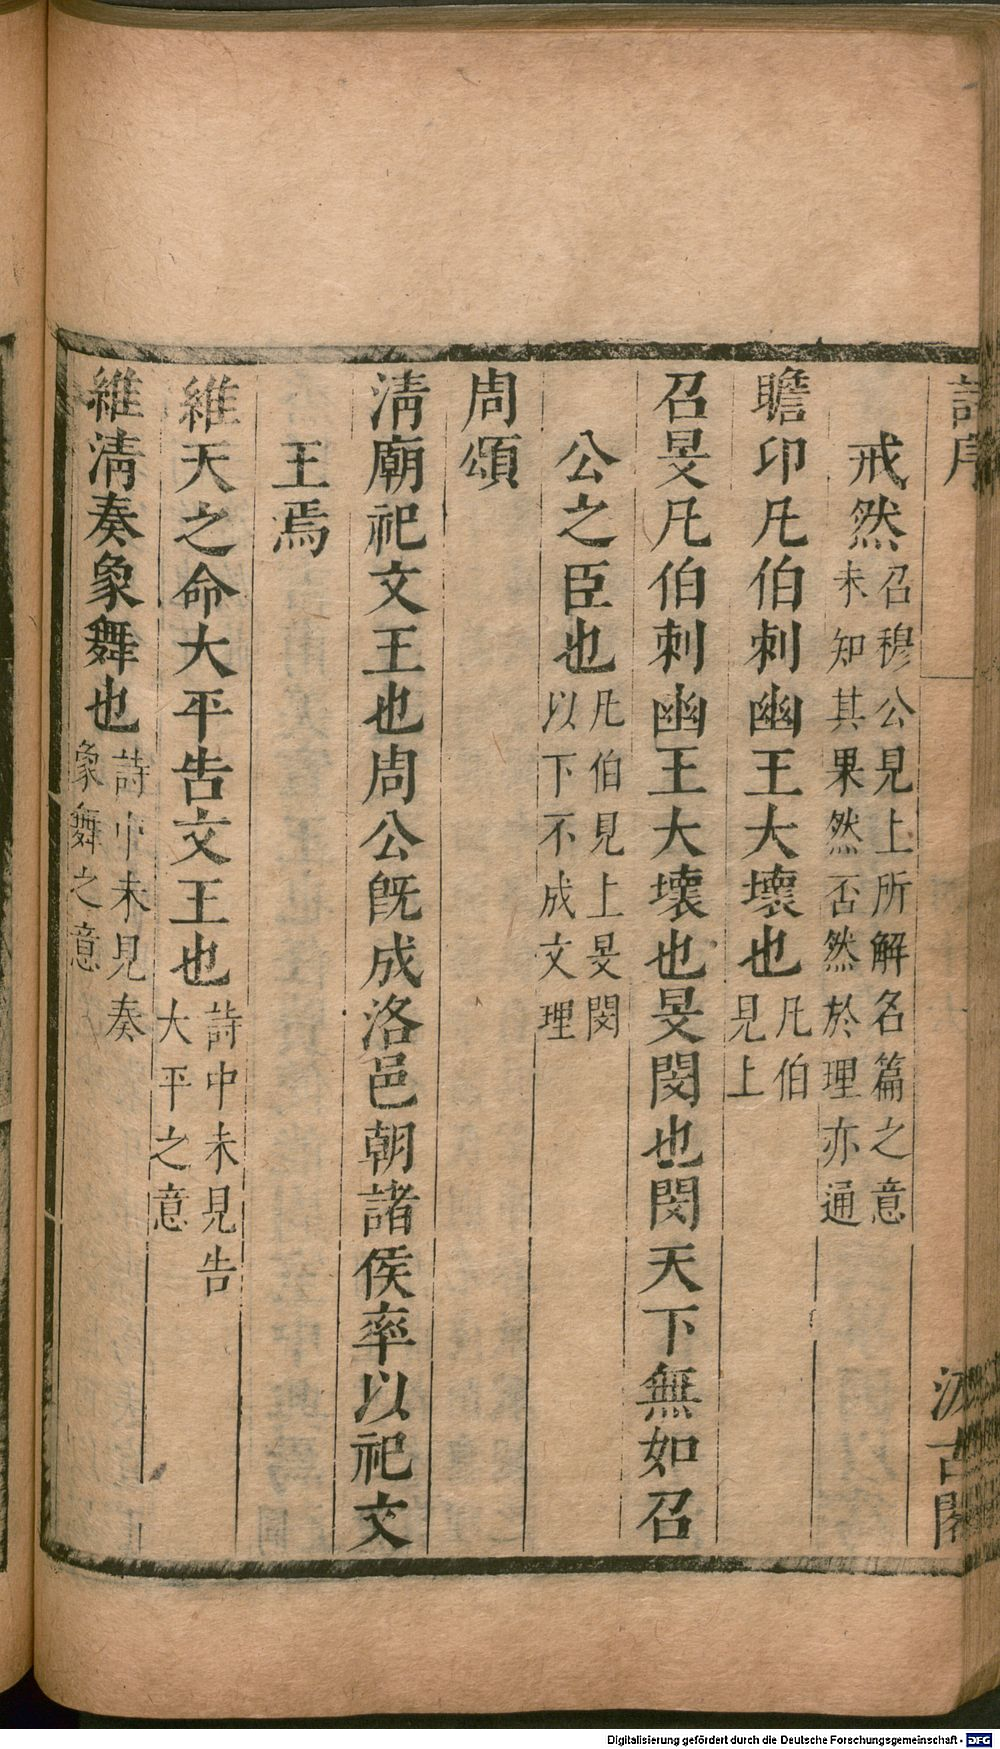 詩序
汲古閣
戒然召穆公見上所解名篇之意
未知其果然否然於理亦通
瞻卬凡伯刺幽王大壞也凡伯
見上
召旻凡伯刺幽王大壞也旻閔也閔天下無如召
公之臣也凡伯見上旻閔
以下不成文理
周頌
淸廟祀文王也周公旣成洛邑朝諸侯率以祀文
王焉
維天之命大平告文王也詩中未見告
大平之意
維淸奏象舞也詩中未見奏
象舞之意
Digitalisierung gefördert durch die Deutsche Forschungsgemeinschaft - DFG